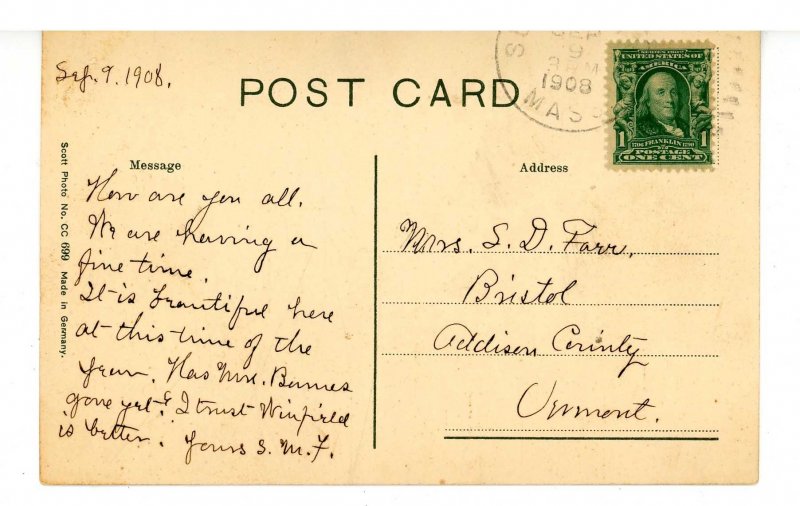 Sep. 9. 1908.
POST CARD
SEP
9
1908
MASS
SERIES 1902
UNITED STATES OF
AMERICA
1 FRANKLIN 1
1706 1790
POSTAGE
ONE CENT
Message
How are you all.
We are having a
fine time.
It is beautiful here
at this time of the
year. Has Mrs. Barnes
gone yet? I trust Winfield
is better. Yours S. M. F.
Address
Mrs. S. D. Farr,
Bristol
Addison County
Vermont.
Scott Photo No. CC 699 Made in Germany.